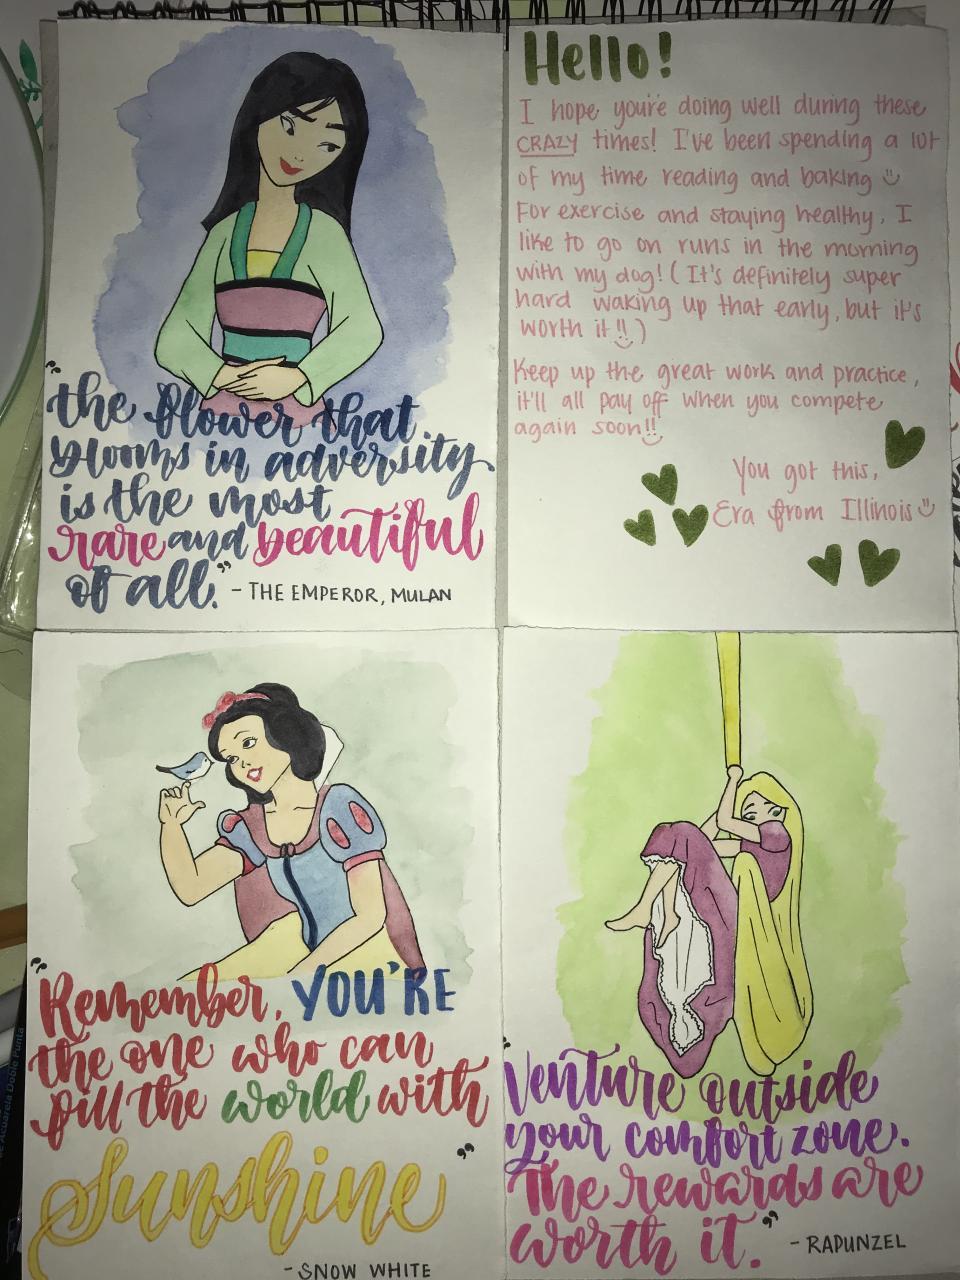 "the flower that
blooms in adversity
is the most
rare and beautiful
of all." - THE EMPEROR, MULAN
Hello!
I hope you're doing well during these
CRAZY times! I've been spending a lot
of my time reading and baking
For exercise and staying healthy, I
like to go on runs in the morning
with my dog! (It's definitely super
hard waking up that early, but it's
worth it!!)
Keep up the great work and practice,
it'll all pay off when you compete
again soon!!
You got this,
Era from Illinois
"Remember, YOU'RE
the one who can
fill the world with
Sunshine"
- SNOW WHITE
"Venture outside
your comfort zone.
The rewards are
worth it." - RAPUNZEL
de Acuarela Doble Punta